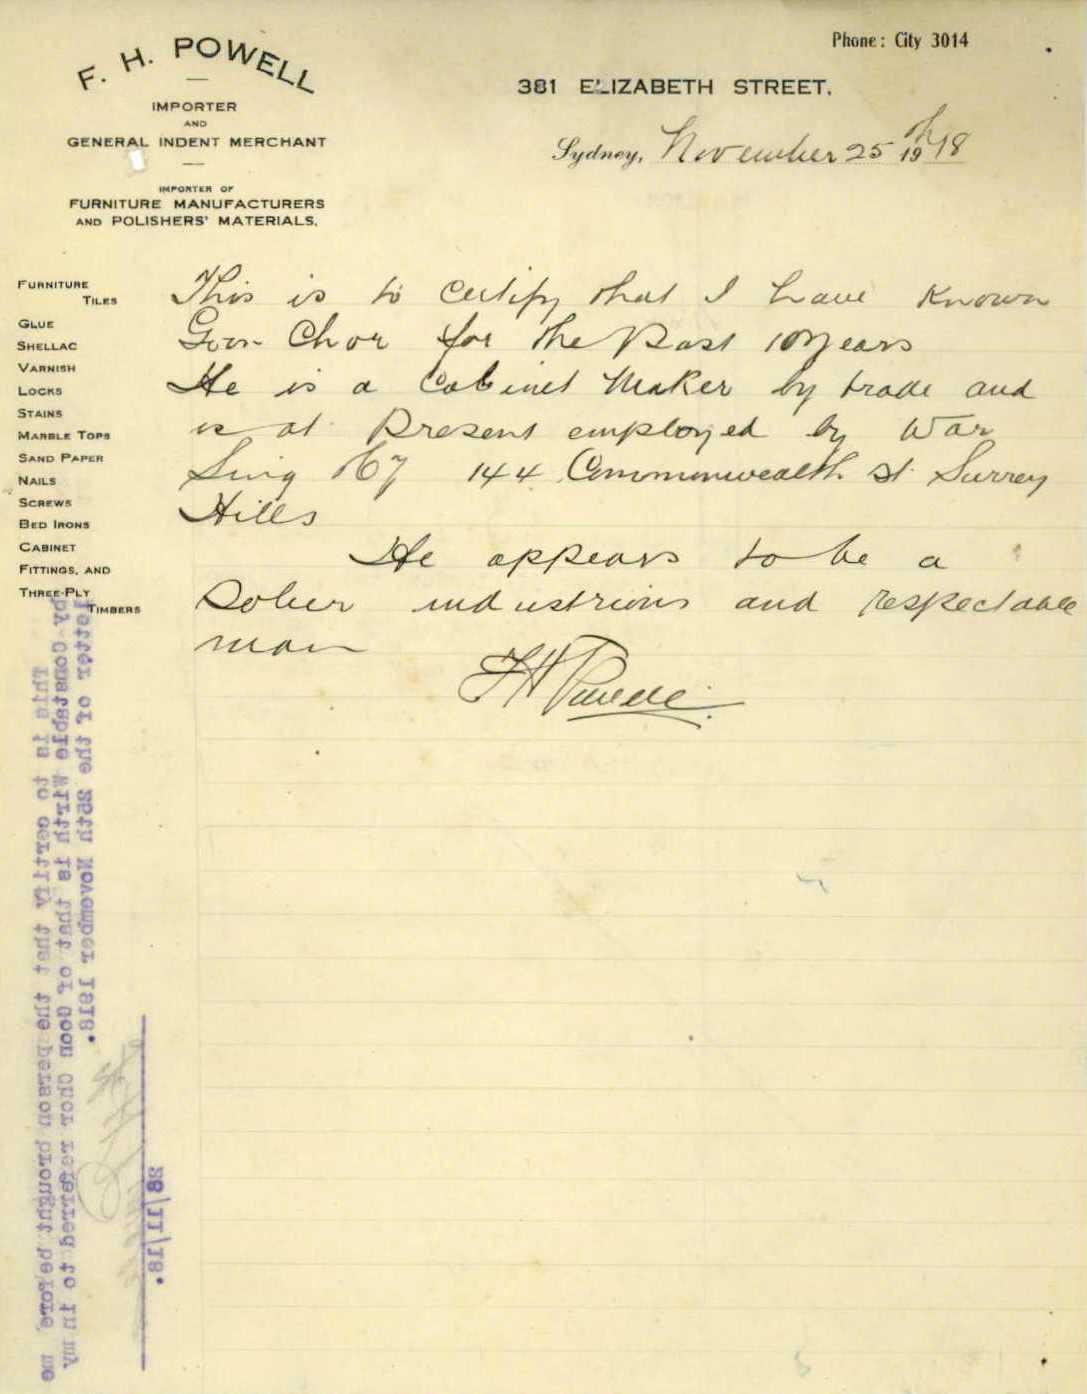 F. H. POWELL
IMPORTER
AND
GENERAL INDENT MERCHANT
IMPORTER OF
FURNITURE MANUFACTURERS
AND POLISHERS' MATERIALS.
Phone: City 3014
381 ELIZABETH STREET.
Sydney, November 25th 1918
FURNITURE
TILES
GLUE
SHELLAC
VARNISH
LOCKS
STAINS
MARBLE TOPS
SAND PAPER
NAILS
SCREWS
BED IRONS
CABINET
FITTINGS, AND
THREE-PLY
TIMBERS
This is to certify that I have known
Goon Chor for the Past 10 years
He is a Cabinet Maker by trade and
is at Present employed by War
Sing 144 Commonwealth St Surrey
Hills
He appears to be a
Sober industrious and respectable
man
F H Powell.
This is to certify that the person brought before me
by Constable Wirth is that of Goon Chor referred to in my
letter of the 25th November 1918.
28/11/18.